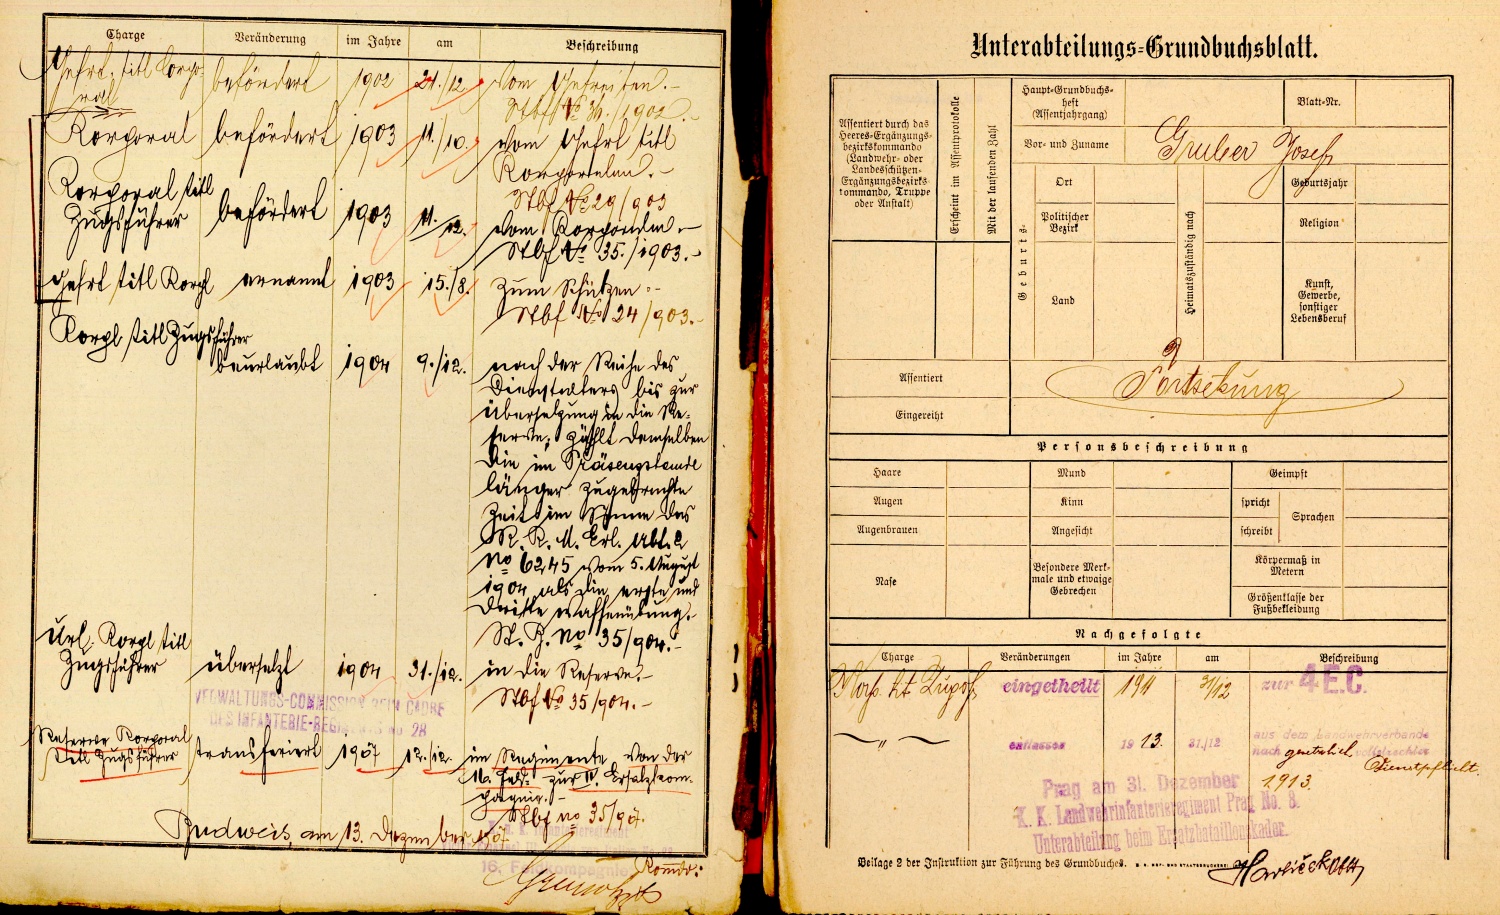 Charge Veränderung im Jahre am Beschreibung
Gefrt. titl Corpo-
ral befördert 1902 21./12. vom Gefreiten.-
Stbf No 31./1902.
Korporal befördert 1903 11./10. vom Gefrt titl
Korporalen.-
Stbf No 29/903
Korporal titl
Zugsführer befördert 1903 11./12. vom Korporalen.-
Stbf No 35./1903.-
Gefrt titl Korpl ernannt 1903 15./8. zum Schützen.-
Stbf No 24/903.-
Korpl titl Zugsführer
beurlaubt 1904 9./12. nach der Reihe des
Dienstalters bis zur
Übersetzung in die Re-
serve; zählt demselben
die im Präsenzstande
länger zugebrachte
Zeit im Sinne des
R. K. M. Erl. Abt. 2
No 6245 vom 5. August
1904 als die erste und
dritte Waffenübung.-
St. B. No 35/904.-
Url. Korpl titl
Zugsführer übersetzt 1904 31./12. in die Reserve.-
Stbf No 35/904.-
VERWALTUNGS-COMMISSION BEIM CADRE
DES INFANTERIE-REGIMENTS No 28
Reserve Korporal
titl Zugsführer transferiert 1907 12./12. im Regimente von der
16. Feld- zur IV. Ersatzkom-
pagnie.-
Stbf No 35/907.
Budweis, am 13. Dezember 1907
16. Feldcompagnie
Komdt:
Unterabteilungs-Grundbuchsblatt.
Assentiert durch das
Heeres-Ergänzungs-
bezirkskommando
(Landwehr- oder
Landesschützen-
Ergänzungsbezirks-
kommando, Truppe
oder Anstalt)
Erscheint im Assentprotokolle
Mit der laufenden Zahl
Haupt-Grundbuchs-
heft
(Assentjahrgang)
Blatt-Nr.
Vor- und Zuname Gruber Josef
Geburts-
Ort
Politischer
Bezirk
Land
Heimatszuständig nach
Geburtsjahr
Religion
Kunst,
Gewerbe,
sonstiger
Lebensberuf
Assentiert
Eingereiht
Fortsetzung
Personsbeschreibung
Haare Mund Geimpft
Augen Kinn spricht Sprachen
Augenbrauen Angesicht schreibt
Nase Besondere Merk-
male und etwaige
Gebrechen
Körpermaß in
Metern
Größenklasse der
Fußbekleidung
Nachgefolgte
Charge Veränderungen im Jahre am Beschreibung
Korp. tit Zugsf eingetheilt 1911 31/12 zur 4 E.C.
— " — entlassen 1913. 31./12 aus dem Landwehrverbande
nach gesetzlich vollstreckter
Dienstpflicht.
1913.
Prag am 31. Dezember
K. K. Landwehrinfanterieregiment Prag No. 8.
Unterabteilung beim Ersatzbataillonskader.
Beilage 2 der Instruktion zur Führung des Grundbuches. K. K. HOF- UND STAATSDRUCKEREI